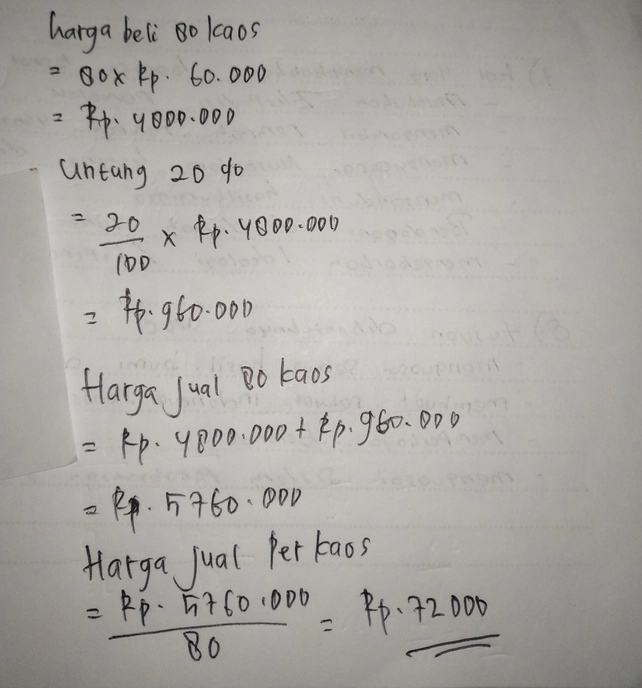 harga beli 80 kaos
= 80 x Rp. 60.000
= Rp. 4800.000
Untung 20 %
= 20/100 x Rp. 4800.000
= Rp. 960.000
Harga jual 80 kaos
= Rp. 4800.000 + Rp. 960.000
= Rp. 5760.000
Harga jual Per kaos
= Rp. 5760.000/80 = Rp. 72000